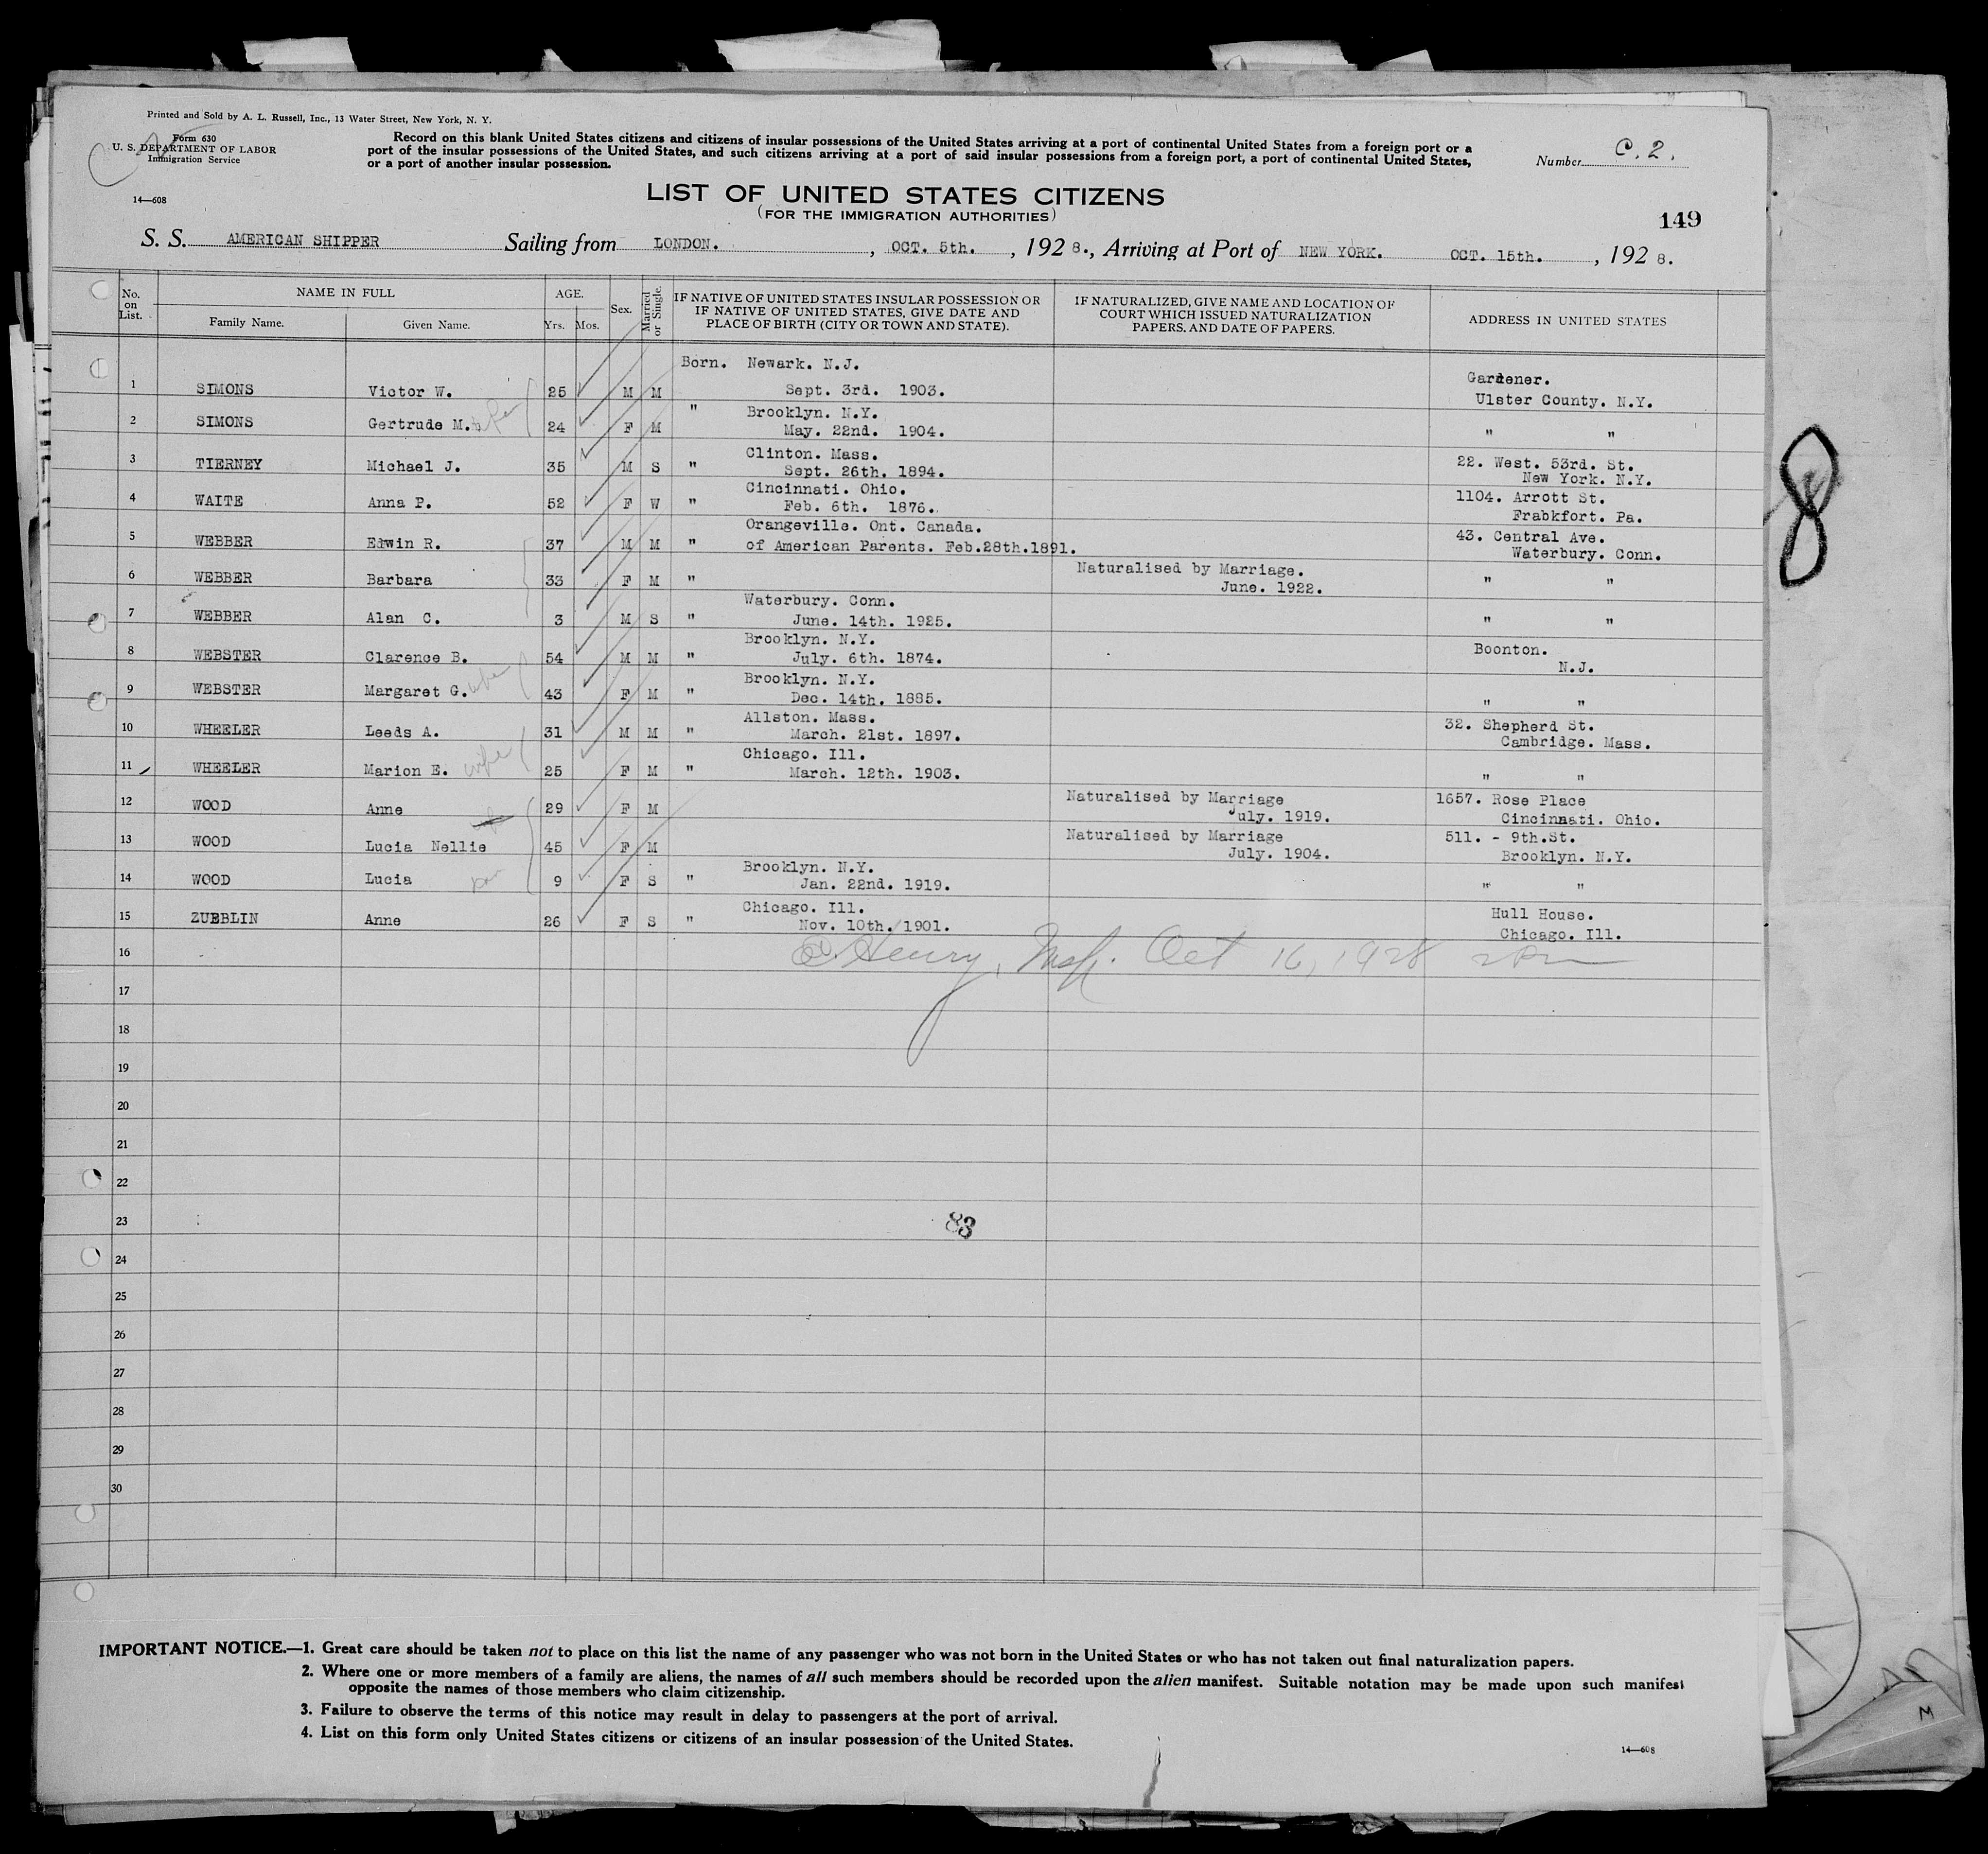 Printed and Sold by A. L. Russell, Inc., 13 Water Street, New York, N. Y.
Form 630
U. S. DEPARTMENT OF LABOR
Immigration Service
14—608
Record on this blank United States citizens and citizens of insular possessions of the United States arriving at a port of continental United States from a foreign port or a
port of the insular possessions of the United States, and such citizens arriving at a port of said insular possessions from a foreign port, a port of continental United States,
or a port of another insular possession.
Number C. 2.
LIST OF UNITED STATES CITIZENS
(FOR THE IMMIGRATION AUTHORITIES)
149
S. S. AMERICAN SHIPPER Sailing from LONDON. , OCT. 5th. , 192 8., Arriving at Port of NEW YORK. OCT. 15th. , 192 8.
No. on List. NAME IN FULL AGE. Sex. Married or Single. IF NATIVE OF UNITED STATES INSULAR POSSESSION OR IF NATIVE OF UNITED STATES, GIVE DATE AND PLACE OF BIRTH (CITY OR TOWN AND STATE). IF NATURALIZED, GIVE NAME AND LOCATION OF COURT WHICH ISSUED NATURALIZATION PAPERS, AND DATE OF PAPERS. ADDRESS IN UNITED STATES
Family Name. Given Name. Yrs. Mos.
Born. Newark. N.J. Gardener.
1 SIMONS Victor W. 25 M M Sept. 3rd. 1903. Ulster County. N.Y.
" Brooklyn. N.Y.
2 SIMONS Gertrude M. 24 F M May. 22nd. 1904. " "
Clinton. Mass. 22. West. 53rd. St.
3 TIERNEY Michael J. 35 M S " Sept. 26th. 1894. New York. N.Y.
Cincinnati. Ohio. 1104. Arrott St.
4 WAITE Anna P. 52 F W " Feb. 6th. 1876. Frabkfort. Pa.
Orangeville. Ont. Canada. 43. Central Ave.
5 WEBBER Edwin R. 37 M M " of American Parents. Feb.28th.1891. Waterbury. Conn.
Naturalised by Marriage.
6 WEBBER Barbara 33 F M " June. 1922. " "
Waterbury. Conn.
7 WEBBER Alan C. 3 M S " June. 14th. 1925. " "
Brooklyn. N.Y. Boonton.
8 WEBSTER Clarence B. 54 M M " July. 6th. 1874. N.J.
Brooklyn. N.Y.
9 WEBSTER Margaret G. wife 43 F M " Dec. 14th. 1885. " "
Allston. Mass. 32. Shepherd St.
10 WHEELER Leeds A. 31 M M " March. 21st. 1897. Cambridge. Mass.
Chicago. Ill.
11 WHEELER Marion E. wife 25 F M " March. 12th. 1903. " "
Naturalised by Marriage 1657. Rose Place
12 WOOD Anne 29 F M July. 1919. Cincinnati. Ohio.
Naturalised by Marriage 511. - 9th.St.
13 WOOD Lucia Nellie 45 F M July. 1904. Brooklyn. N.Y.
Brooklyn. N.Y.
14 WOOD Lucia 9 F S " Jan. 22nd. 1919. " "
Chicago. Ill. Hull House.
15 ZUEBLIN Anne 26 F S " Nov. 10th. 1901. Chicago. Ill.
16 Henry, Insp. Oct 16, 1928 2 PM
17
18
19
20
21
22
23
83
24
25
26
27
28
29
30
8
IMPORTANT NOTICE.—1. Great care should be taken not to place on this list the name of any passenger who was not born in the United States or who has not taken out final naturalization papers.
2. Where one or more members of a family are aliens, the names of all such members should be recorded upon the alien manifest. Suitable notation may be made upon such manifest
opposite the names of those members who claim citizenship.
3. Failure to observe the terms of this notice may result in delay to passengers at the port of arrival.
4. List on this form only United States citizens or citizens of an insular possession of the United States.
14—608
M